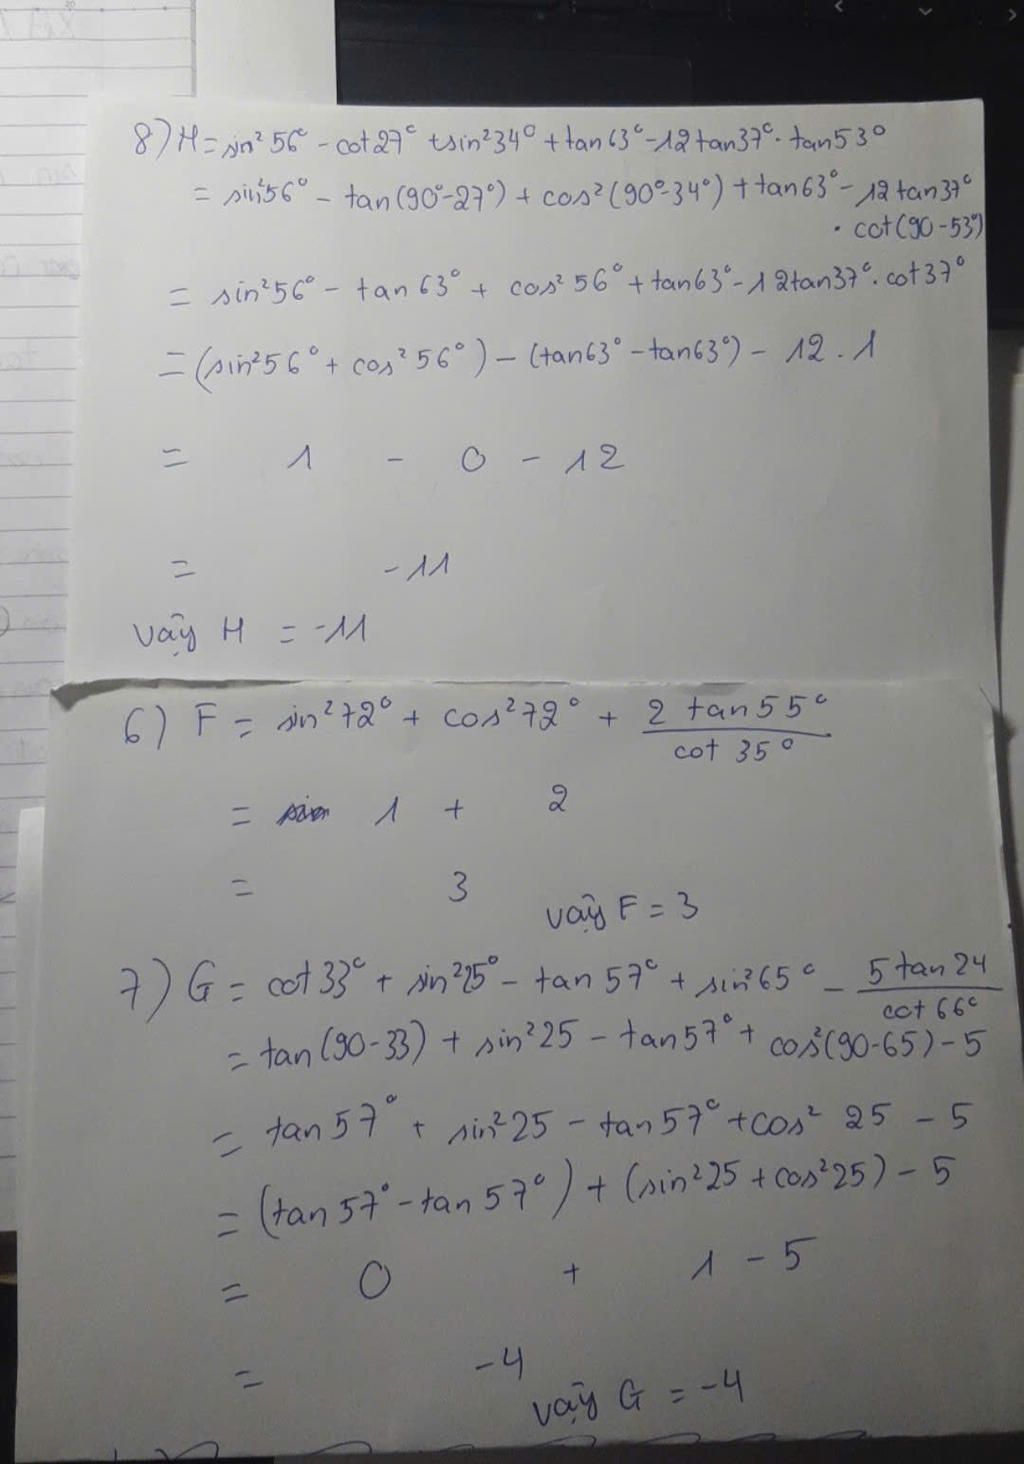 8) H = sin²56° - cot27° + sin²34° + tan63° - 12tan37° . tan53°
= sin²56° - tan(90°-27°) + cos²(90°-34°) + tan63° - 12tan37°
. cot(90-53°)
= sin²56° - tan63° + cos²56° + tan63° - 12tan37° . cot37°
= (sin²56° + cos²56°) - (tan63° - tan63°) - 12 . 1
= 1 - 0 - 12
= -11
vậy H = -11
6) F = sin²72° + cos²72° + 2 tan55° / cot 35°
= 1 + 2
= 3
vậy F = 3
7) G = cot33° + sin²25° - tan57° + sin²65° - 5tan24 / cot66°
= tan(90-33) + sin²25 - tan57° + cos²(90-65) - 5
= tan57° + sin²25 - tan57° + cos² 25 - 5
= (tan57° - tan57°) + (sin²25 + cos²25) - 5
= 0 + 1 - 5
= -4
vậy G = -4